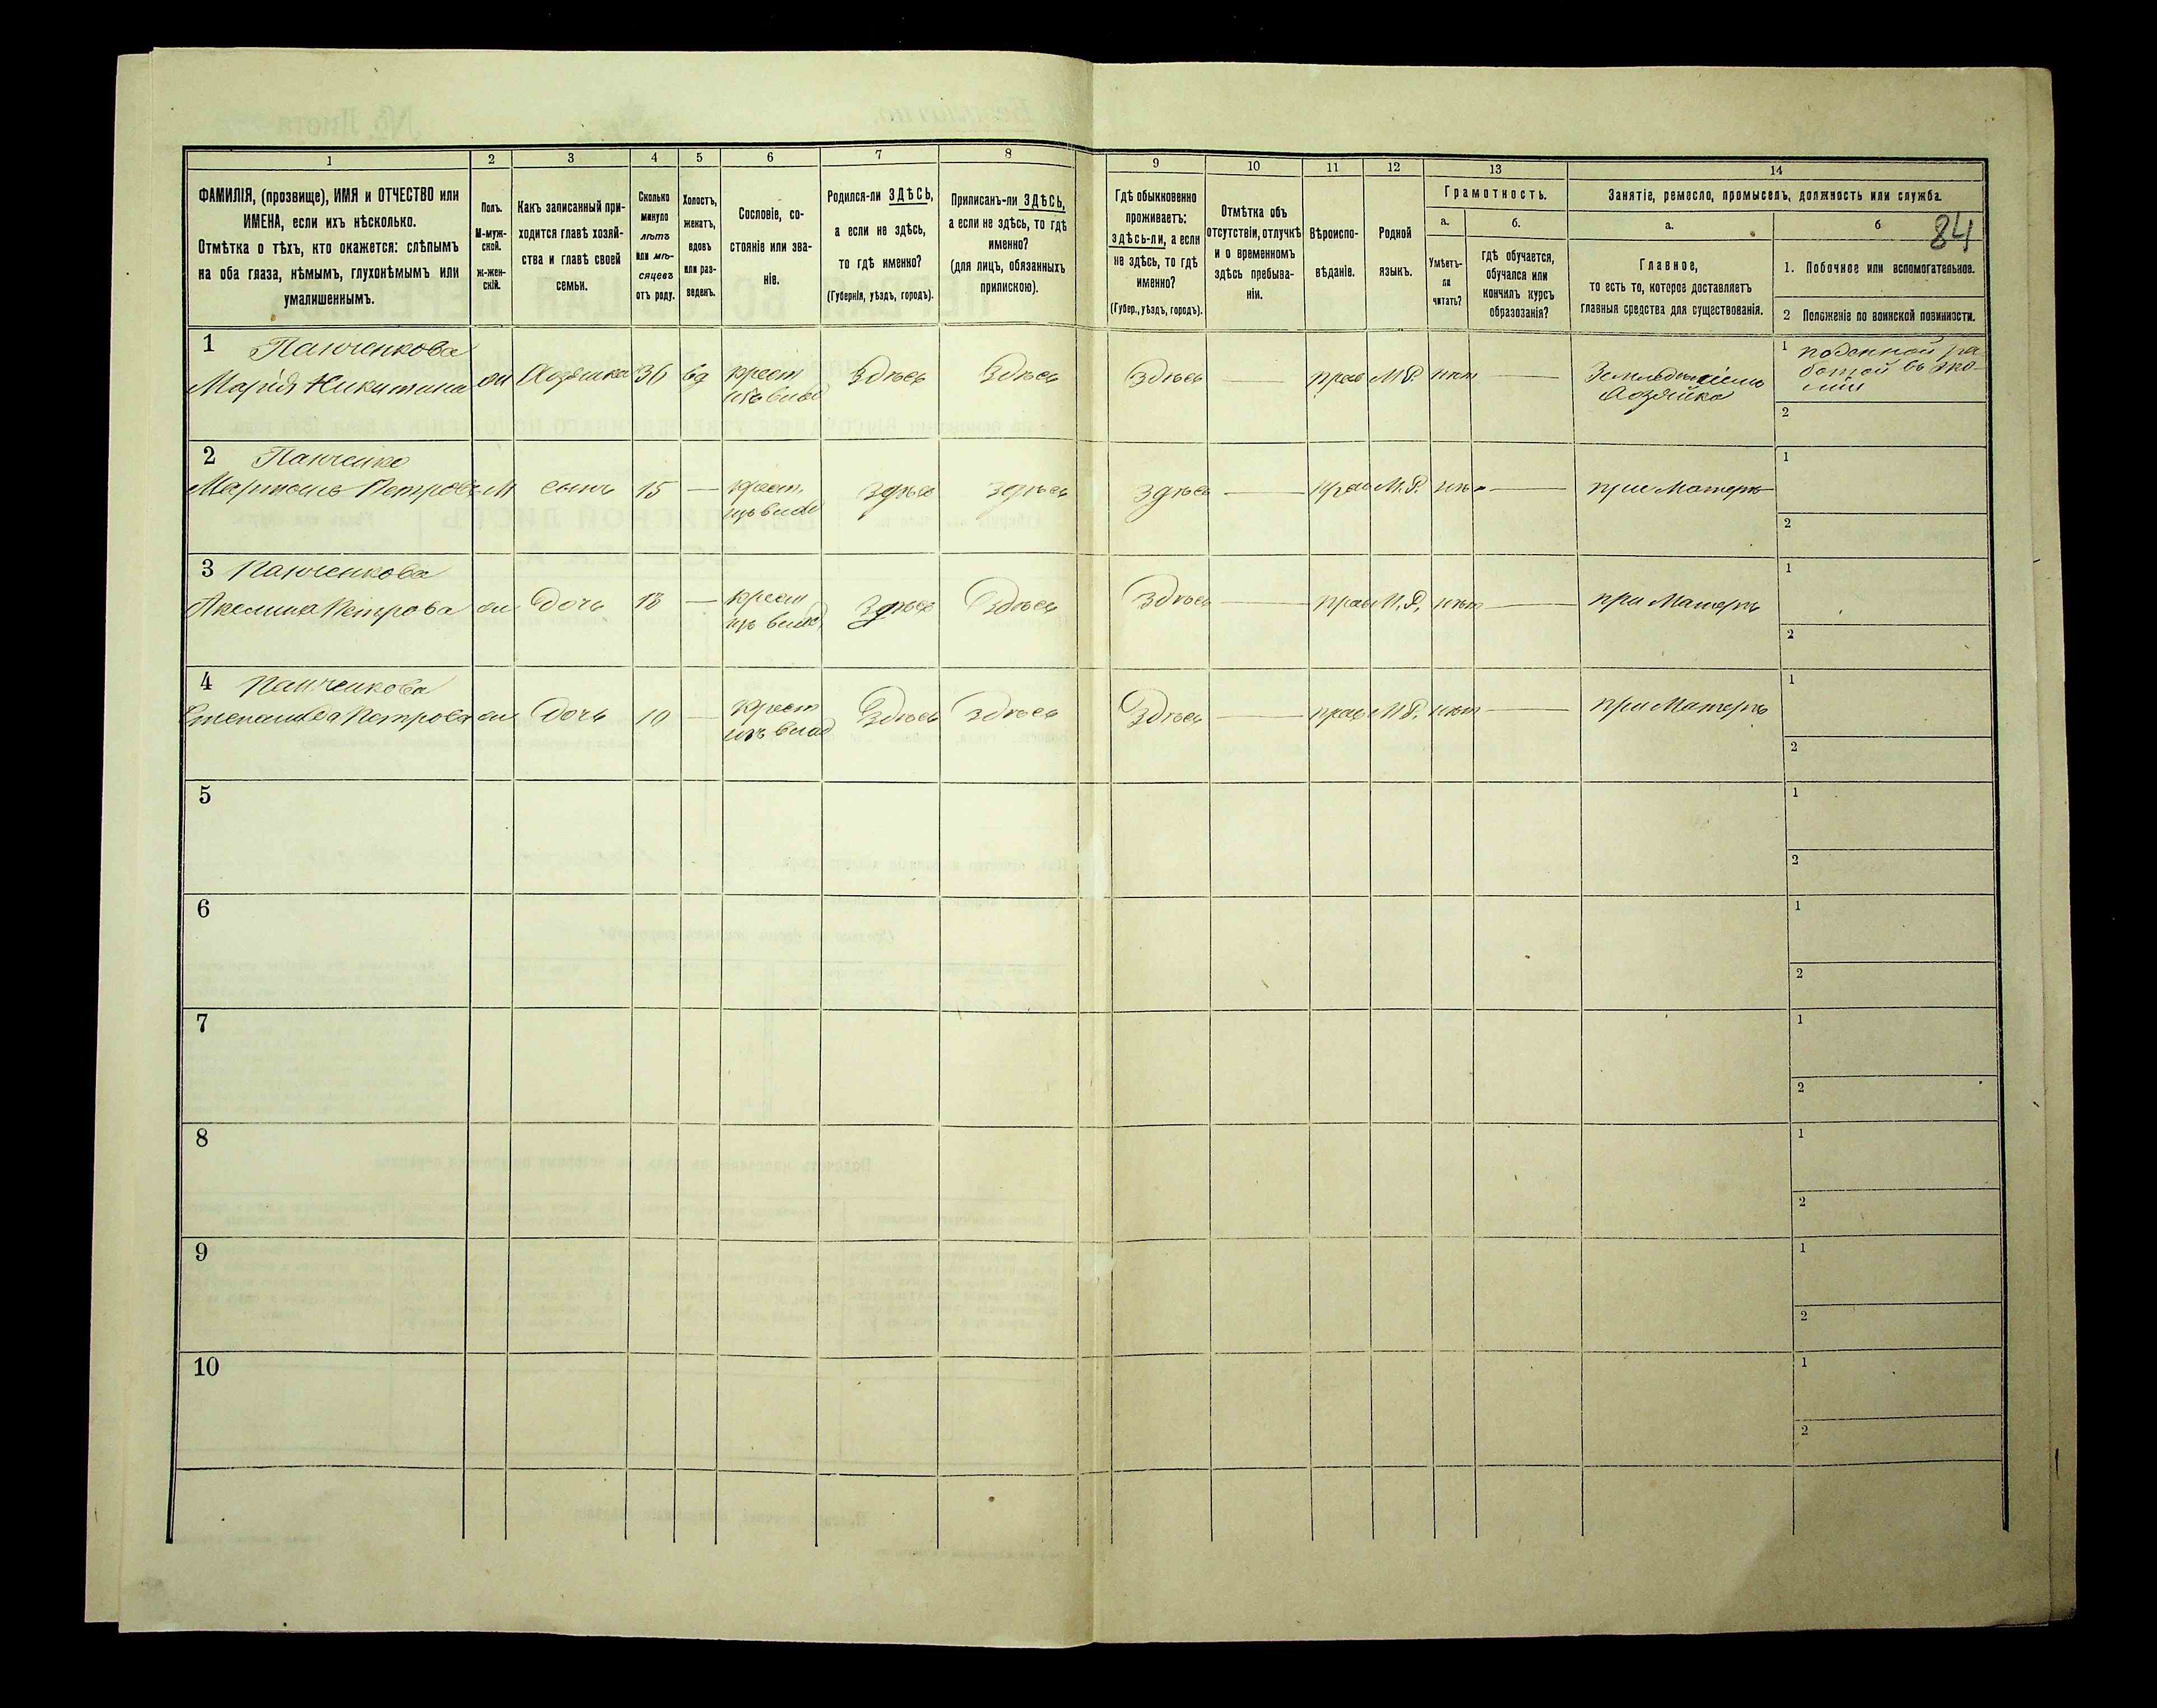 1 2 3 4 5 6 7 8 9 10 11 12 13 14
ФАМИЛІЯ, (прозвище), ИМЯ и ОТЧЕСТВО или
ИМЕНА, если ихъ нѣсколько.
Отмѣтка о тѣхъ, кто окажется: слѣпымъ
на оба глаза, нѣмымъ, глухонѣмымъ или
умалишеннымъ.
Полъ.
М-муж-
ской.
Ж-жен-
скій.
Какъ записанный при-
ходится главѣ хозяй-
ства и главѣ своей
семьи.
Сколько
минуло
лѣтъ
или мѣ-
сяцевъ
отъ роду.
Холостъ,
женатъ,
вдовъ
или раз-
веденъ.
Сословіе, со-
стояніе или зва-
ніе.
Родился-ли ЗДѢСЬ,
а если не здѣсь,
то гдѣ именно?
(Губернія, уѣздъ, городъ).
Приписанъ-ли ЗДѢСЬ,
а если не здѣсь, то гдѣ
именно?
(для лицъ, обязанныхъ
припискою).
Гдѣ обыкновенно
проживаетъ:
здѣсь-ли, а если
не здѣсь, то гдѣ
именно?
(Губер., уѣздъ, городъ).
Отмѣтка объ
отсутствіи, отлучкѣ
и о временномъ
здѣсь пребыва-
ніи.
Вѣроиспо-
вѣданіе.
Родной
языкъ.
Грамотность.
а.
Умѣетъ-
ли
читать?
б.
гдѣ обучается,
обучался или
кончилъ курсъ
образозанія?
Занятіе, ремесло, промыселъ, должность или служба.
а.
Главное,
то есть то, которое доставляетъ
главныя средства для существованія.
б
84
1. Побочное или вспомогательное.
2 Положеніе по воинской повинности.
1 Панченкова
Марія Никитина ж Хозяйка 36 вд крест Здѣсь Здѣсь Здѣсь — прав М.Р. нѣт — Хозяйка
изъ влад
1 поденной ра
ботой въ эко-
міи
2
2 Панченко
Петровъ М сынъ 15 — крест. здѣсь здѣсь здѣсь — прав М.Р. нѣт — при Матери
изъ влад
1
2
3 Панченкова
Акелина Петрова ж дочь 13 — крест здѣсь Здѣсь Здѣсь — прав М.Р. нѣт — при Матери
изъ влад
1
2
4 Панченкова
Степанида Петрова ж дочь 10 — крест Здѣсь Здѣсь Здѣсь — прав М.Р. нѣт — при Матери
изъ влад
1
2
5
1
2
6
1
2
7
1
2
8
1
2
9
1
2
10
1
2